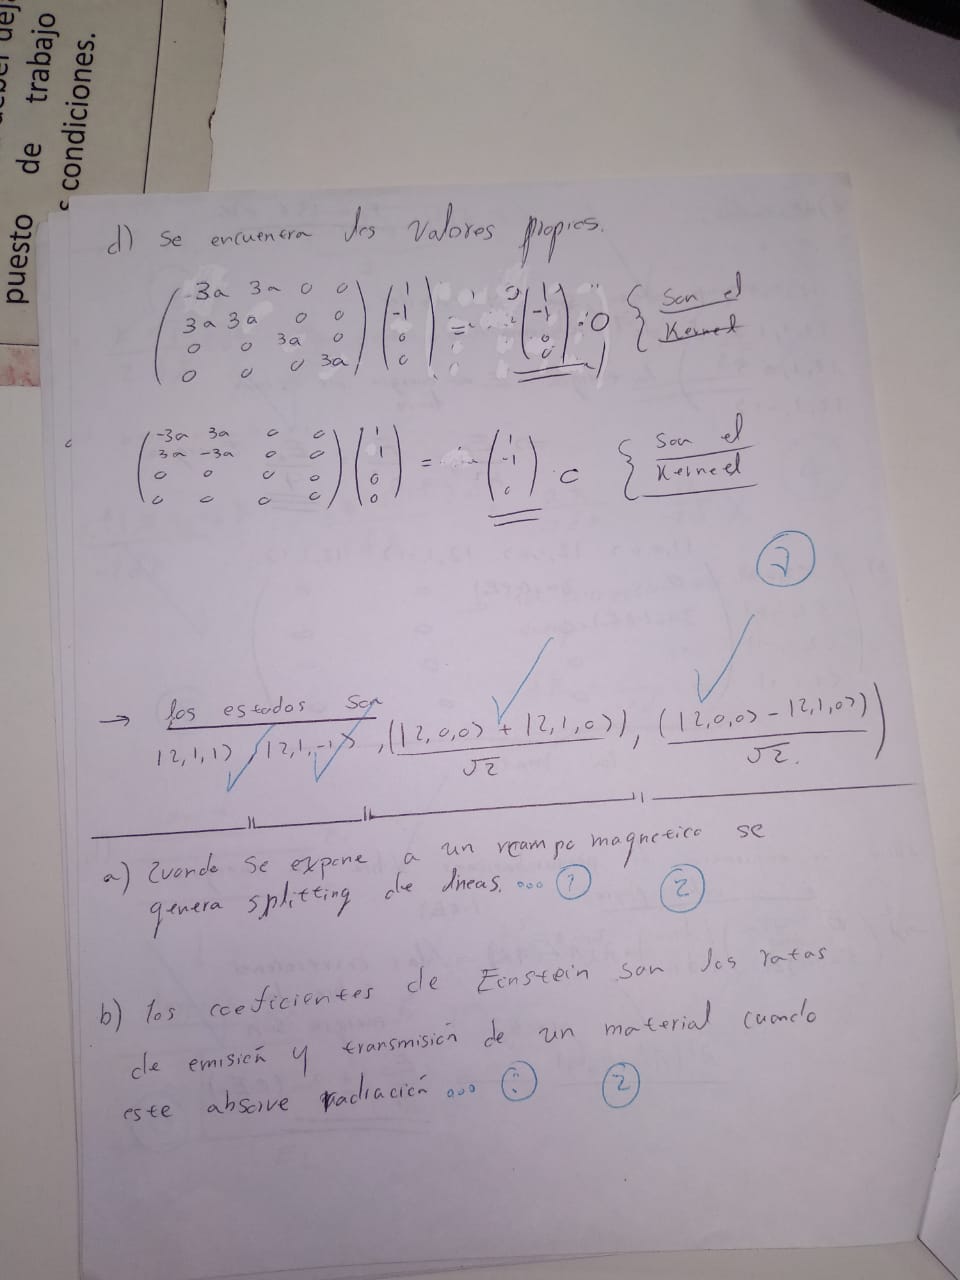 puesto de trabajo
condiciones.
d) Se encuentra los valores propios.
( 3a 3a 0 0 ) ( 1 ) = ( 1 ) · 0 { Son el
( 3a 3a 0 0 ) ( -1 ) ( -1 ) Kernel
( 0 0 3a 0 ) ( 0 ) ( 0 )
( 0 0 0 3a ) ( 0 ) ( 0 )
( -3a 3a 0 0 ) ( 1 ) = ( 1 ) · 0 { Son el
( 3a -3a 0 0 ) ( 1 ) ( -1 ) Kerneel
( 0 0 0 0 ) ( 0 ) ( 0 )
( 0 0 0 0 ) ( 0 )
→ los estados son
|2,1,1⟩, |2,1,-1⟩, (|2,0,0⟩ + |2,1,0⟩)/√2, (|2,0,0⟩ - |2,1,0⟩)/√2.
a) Cuando se expone a un campo magnetico se
genera splitting de lineas. ... ? 2
b) los coeficientes de Einstein son las ratas
de emisión y transmisión de un material cuando
este absorve radiación ... : 2